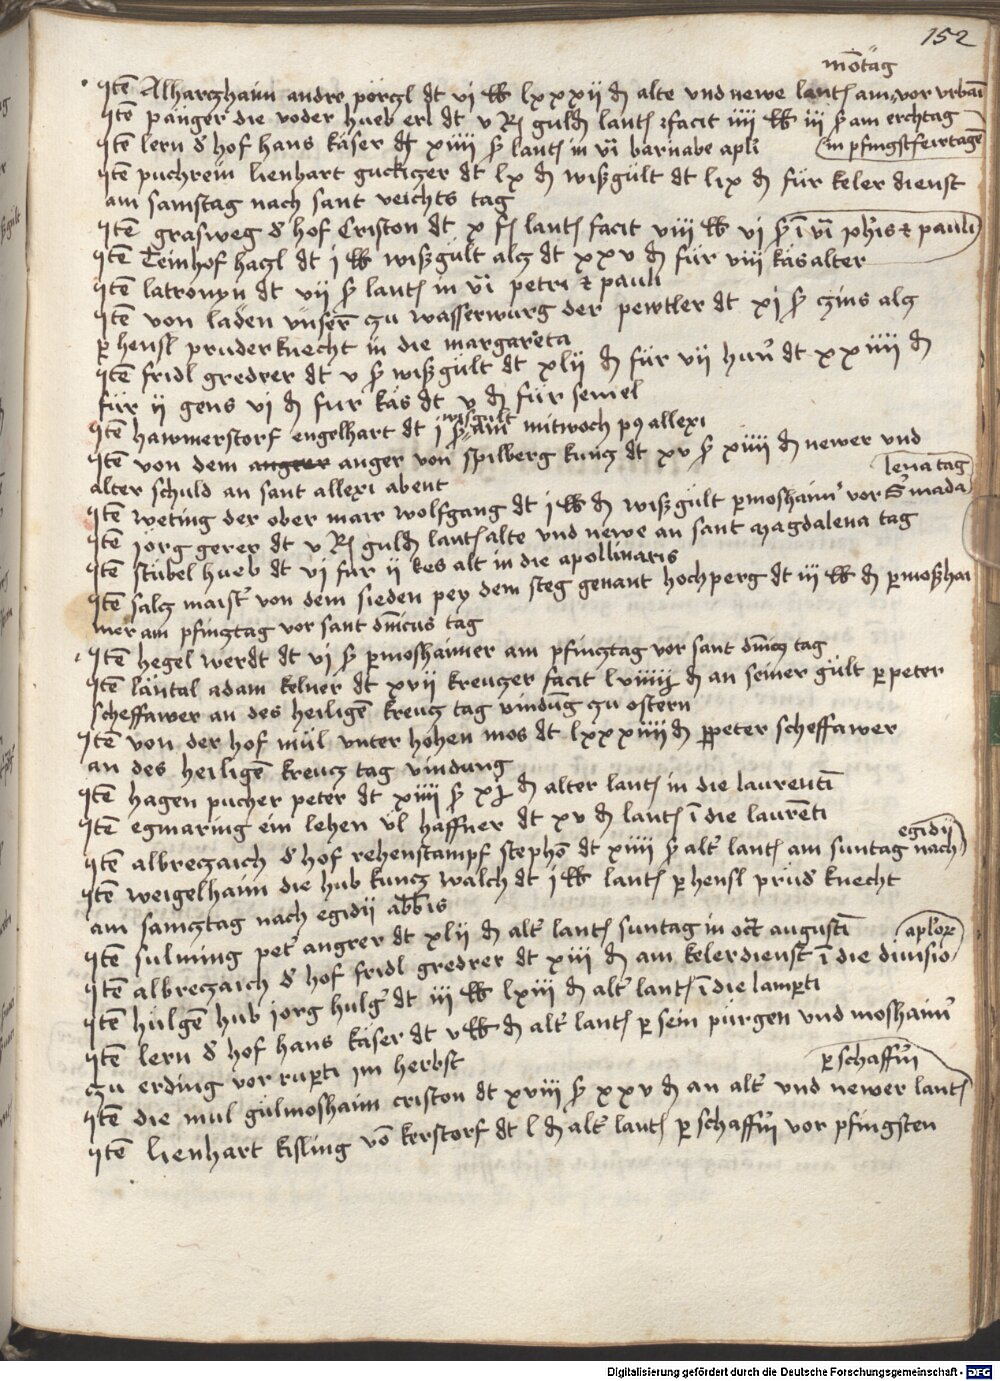 152
mōtag
Itē Alharczhaim andre pörczl dt vi ℔ lxxxii ₰ alte vnd newe lantſ am vor vrbāi
Itē pänger die voder hueb erl dt v Rſ guldī lantſ facit iiii ℔ iii ß am erchtag
Itē lern d' hof hans käser dt xiiii ß lantſ in vī barnabe apli in pfingstfeirtagē
Itē puchrein lienhart guckiczer dt lx ₰ wißgült dt lix ₰ für keler dienst
am samstag nach sant veichts tag
Itē grasweg d' hof Criston dt x fſ lantſ facit viii ℔ vi ß ī vī ph'is ⁊ pauli
Itē Teinhof haczl dt i ℔ wißgült alcz dt xxv ₰ für viii käs alter
Itē latronyn dt vii ß lantſ in vī petri ⁊ pauli
Itē von läden vnser̄ zu wasserwurg der pewtler dt xi ß czins alcz
p hensl pruderknecht in die margareta
Itē fridl gredrer dt v ß wißgült dt xlii ₰ für vii hun' dt xxiiii ₰
für ii gens vi ₰ fur käs dt v ₰ für semel
wisgult
Itē hawmerstorf engelhart dt i ß am mitwoch p9 allexi
Itē von dem anger von spilberg kuncz dt xv ß xiiii ₰ newer vnd
alter schuld an sant allexi abent lena tag
Itē weting der ober mair wolfgang dt i ℔ ₰ wißgült p moshaim' vor S' mada
Itē jörg gerer dt v Rſ guldī lantſ alte vnd newe an sant magdalena tag
Itē stübel hueb dt vi für ii kes alt in die apollinaris
Itē salcz maist' von dem sieden pey dem steg genant hochperg dt iii ℔ ₰ p moßhai
mer am pfincztag vor sant dm̄icus tag
Itē hegel werdt dt vi ß p moshaimer am pfincztag vor sant dm̄icz tag
Itē läntal adam kelner dt xvii kreuczer facit lviiij ₰ an seiner gült p peter
scheffawer an des heiligē kreucz tag vindūg zu ostern
Itē von der hof mül vnter hohen mos dt lxxxiiii ₰ p peter scheffawer
an des heiligē kreucz tag vindung
Itē hagen pucher peter dt xiiii ß xj ₰ alter lantſ in die laurentī
Itē egmaring ein lehen vl haffner dt xv ₰ lantſ ī die laurēti
egidij
Itē albreczaich d' hof rehenstampf stephō dt xiiii ß alt' lantſ am suntag nach
Itē weigelhaim die hub kuncz walch dt i ℔ lantſ p hensl prüd' knecht
am samcztag nach egidij abb̄is
Itē sulming pet' angrer dt xlii ₰ alt' lantſ suntag in oct̄ augustī aplor̄
Itē albreczaich d' hof fridl gredrer dt xiii ₰ am kelerdienst ī die diuisio
Itē hulgē hub jorg hulg' dt iii ℔ lxiii ₰ alt' lantſ ī die lamp̄ti
Itē lern d' hof hans käser dt v ℔ ₰ alt' lantſ p sein pürgen vnd moshaim'
zu erding vor rup̄ti im herbst p schaff'i
Itē die mul gülmoshaim criston dt xviii ß xxv ₰ an alt' vnd newer lantſ
Itē lienhart kisling vō kerstorf dt l ₰ alt' lantſ p schaff'i vor pfingsten
Digitalisierung gefördert durch die Deutsche Forschungsgemeinschaft - DFG